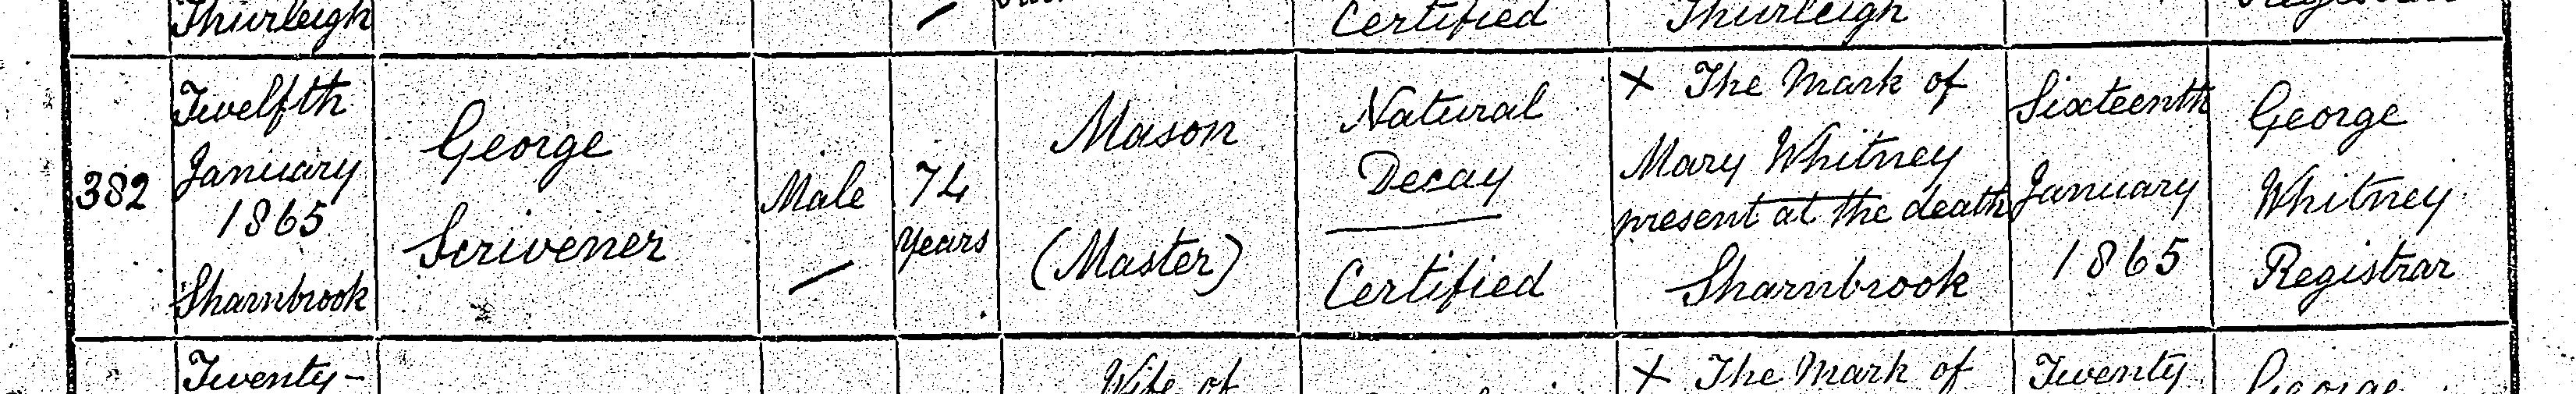 Thurleigh
Certified
Thurleigh
382
Twelfth
January
1865
Sharnbrook
George
Scrivener
Male
74
Years
Mason
(Master)
Natural
Decay
Certified
X The Mark of
Mary Whitney
present at the death
Sharnbrook
Sixteenth
January
1865
George
Whitney
Registrar
Twenty-
Wife of
X The Mark of
Twenty
George